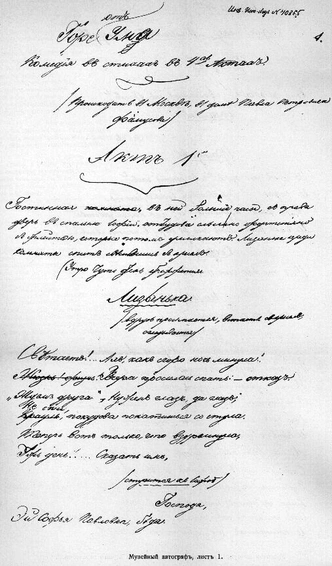 Инв. Гос. Муз. № 40255
1.
отъ
Горе Ума
Комедія въ стихахъ въ 4хъ Актахъ
(Происходитъ въ Москвѣ, въ домѣ Павла
Фамусова)
Актъ 1й
Гостинная комната, въ ней большіе часы, справа
дверь въ спальню Софіи, откудова слышно фортопіано
съ флейтою, которые потом умолкаютъ. Лизинька среди
комнаты спитъ
(Утро чуть день брежжится
Лизинька
(вдругъ просыпается, встаетъ съ креселъ,
оглядывается)
Свѣтаетъ!.. Ахъ, какъ скоро ночь минула!
Вчера просилась спать: — отказъ.
„Ждемъ друга“, нуженъ глазъ да глазъ;
Не спи,
покудова не скатишься со стула.
Теперь вотъ только что вздремнула,
День!.... сказать имъ,
(стучится къ Софіи)
Господа,
Эй Софья Павловна, бѣда.
Музейный автографъ, листъ 1.